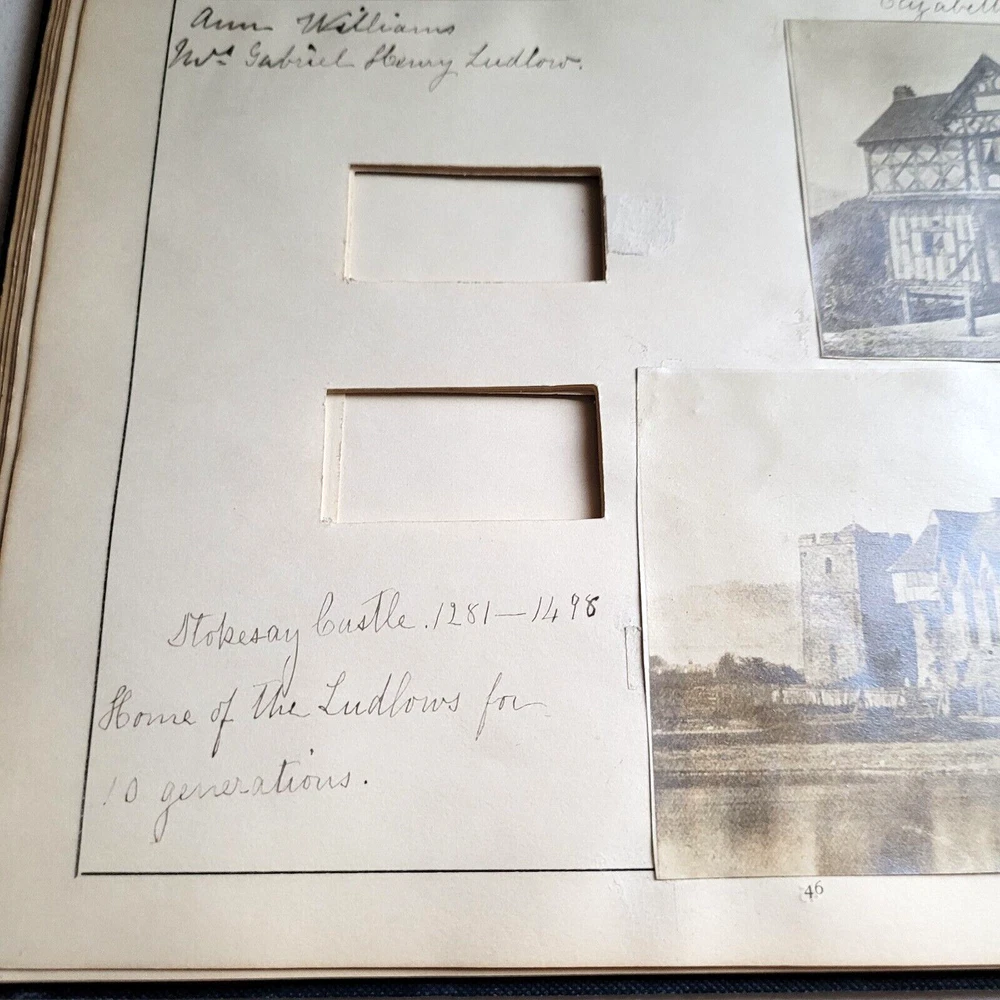 Ann Williams
Mrs Gabriel Henry Ludlow.
Stokesay Castle. 1281—1498
Home of the Ludlows for
10 generations.
46